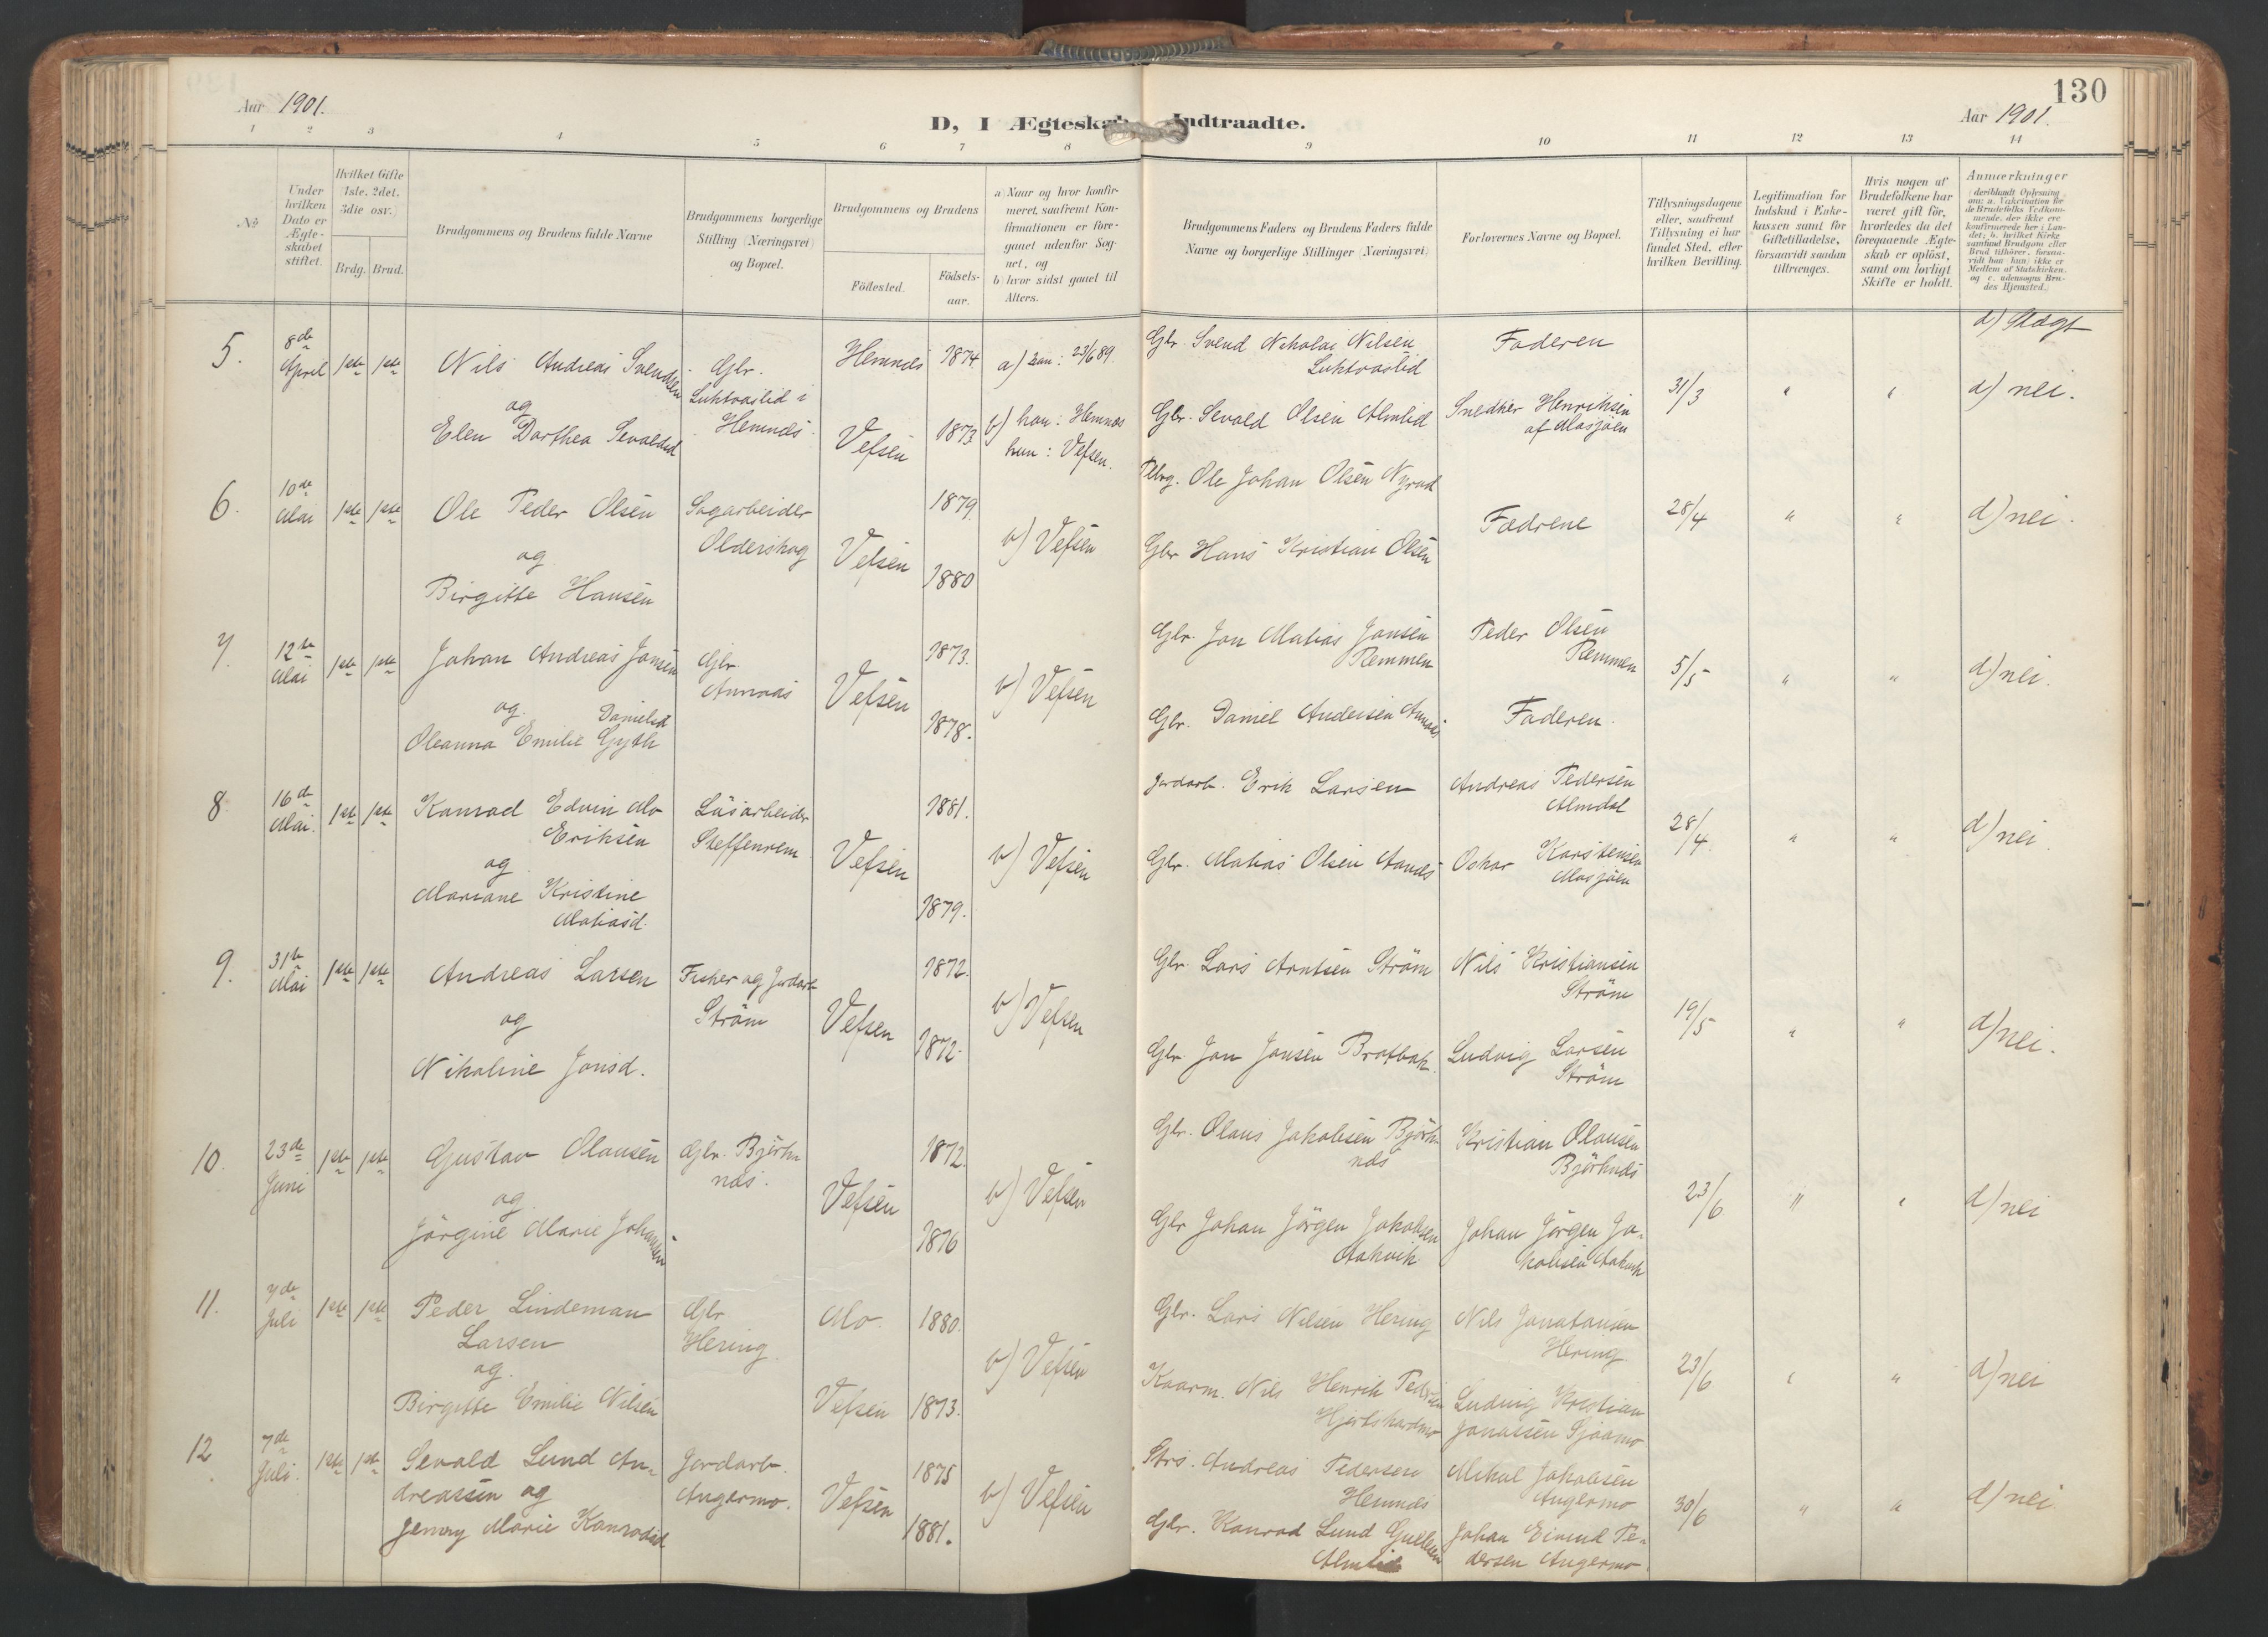 Aar 1901.
D, I Ægteskab Indtraadte.
130
Aar 1901.
1 2 3 4 5 6 7 8 9 10 11 12 13 14
No
Under hvilken Dato er Ægte-skabet stiftet.
Hvilket Gifte 1ste, 2det, 3die osv.
Brdg. Brud.
Brudgommens og Brudens fulde Navne
Brudgommens borgerlige Stilling (Næringsvei) og Bopæl.
Brudgommens og Brudens
Födested.
Födsels-aar.
a) Naar og hvor konfir-meret, saafremt Kon-firmationen er fore-gaaet udenfor Sog-net, og
b) hvor sidst gaaet til Alters.
Brudgommens Faders og Brudens Faders fulde Navne og borgerlige Stillinger (Næringsvei)
Forlovernes Navne og Bopæl.
Tillysningsdagene eller, saafremt Tillysning ei har fundet Sted, efter hvilken Bevilling.
Legitimation for Indskud i Enke-kassen samt for Giftetilladelse, forsaavidt saadan tiltrænges.
Hvis nogen af Brudefolkene har været gift för, hvorledes da det foregaaende Ægte-skab er oplöst, samt om lovligt Skifte er holdt.
Anmærkninger (deriblandt Oplysning om: a. Vakcination for de Brudefolks Vedkom-mende, der ikke ere konfirmerede her i Lan-det; b. hvilket Kirke-samfund Brudgom eller Brud tilhörer, forsaa-vidt han (hun) ikke er Medlem af Statskirken, og c. udensogns Bru-des Hjemsted.)
5. 8de April 1ste 1ste
Nils Andreas Svendsen
og
Elen Dorthea Sevaldsd
Gbr.
Luktvaslid i
Hemnes.
Hemnes 1874
Vefsen 1873
a) han: 23/6 89.
b) han: Hemnes
hun: Vefsen.
Gbr. Svend Nikolai Nilsen
Luktvaslid
Gbr. Sevald Olsen Almlid
Faderen
Snedker Henriksen
af Mosjöen
31/3 " "
d) Slægt
d) nei.
6. 10de Mai 1ste 1ste
Ole Peder Olsen
og
Birgitte Hansen
Sagarbeider
Olderskog
Vefsen
1879.
1880
b) Vefsen
Ole Johan Olsen Nyrud
Gbr Hans Kristian Olsen
Fædrene
28/4 " "
d) nei.
7. 12te Mai 1ste 1ste
Johan Andreas Jonsen
og
Danielsd
Oleanna Emilie Gyth
Gbr.
Aunnas
Vefsen
1873.
1878.
b) Vefsen
Gbr. Jon Matias Jonsen
Remmen
Gbr. Daniel Andersen Aunnas
Peder Olsen
Remmen
Faderen.
5/5 " "
d) nei.
8 16de Mai. 1ste 1ste
Konrad Edvin Mo
Eriksen
og
Mariane Kristine
Matiasd.
Lösarbeider
Steffenrem
Vefsen
1881.
1879.
b) Vefsen
Jordarb. Erik Larsen
Gbr. Matias Olsen Aanes
Andreas Pedersen
Almdal
Oskar Karstensen
Mosjöen
28/4. " "
d) nei.
9. 31te Mai 1ste 1ste
Andreas Larsen
og
Nikoline Jonsd.
Fisker og Jordarb
Ström
Vefsen
1872.
1872.
b) Vefsen
Gbr. Lars Arntsen Ström
Gbr. Jon Jonsen Bratbak.
Nils Kristiansen
Ström
Ludvig Larsen
Ström
19/5 " "
d) nei.
10. 23de Juni 1ste 1ste
Gustav Olausen
og
Jörgine Marie Johansen
Gbr. Björkn
nes.
Vefsen
1872.
1876
b) Vefsen
Gbr. Olaus Jakobsen Björkn
nes
Gbr Johan Jörgen Jakobsen
Aakvik
Kristian Olausen
Björknes
Johan Jörgen Ja-
kobsen Aakvik
23/6 " "
d) nei
11. 7de Juli 1ste 1ste
Peder Lindeman
Larsen
og.
Birgitte Emilie Nilsen
Gbr
Hering
Mo. 1880.
Vefsen 1873.
b) Vefsen
Gbr. Lars Nilsen Hering
Kaarm. Nils Henrik Pedersen
Nils Jonatansen
Hering
Ludvig Kristian
Jonassen Sjaamo
23/6 " "
d) nei
12 7de Juli. 1ste 1ste
Sevald Lund An-
dreassen og
Jenny Marie Konradsd
Jordarb.
Angermo.
Vefsen
1875
1881.
b) Vefsen
Strs. Andreas Pedersen
Hemnes
Gbr. Konrad Lund Gullesen
Almlid
Mikal Jakobsen
Angermo
Johan Eivind Pe-
dersen Angermo.
30/6 " "
d) nei.